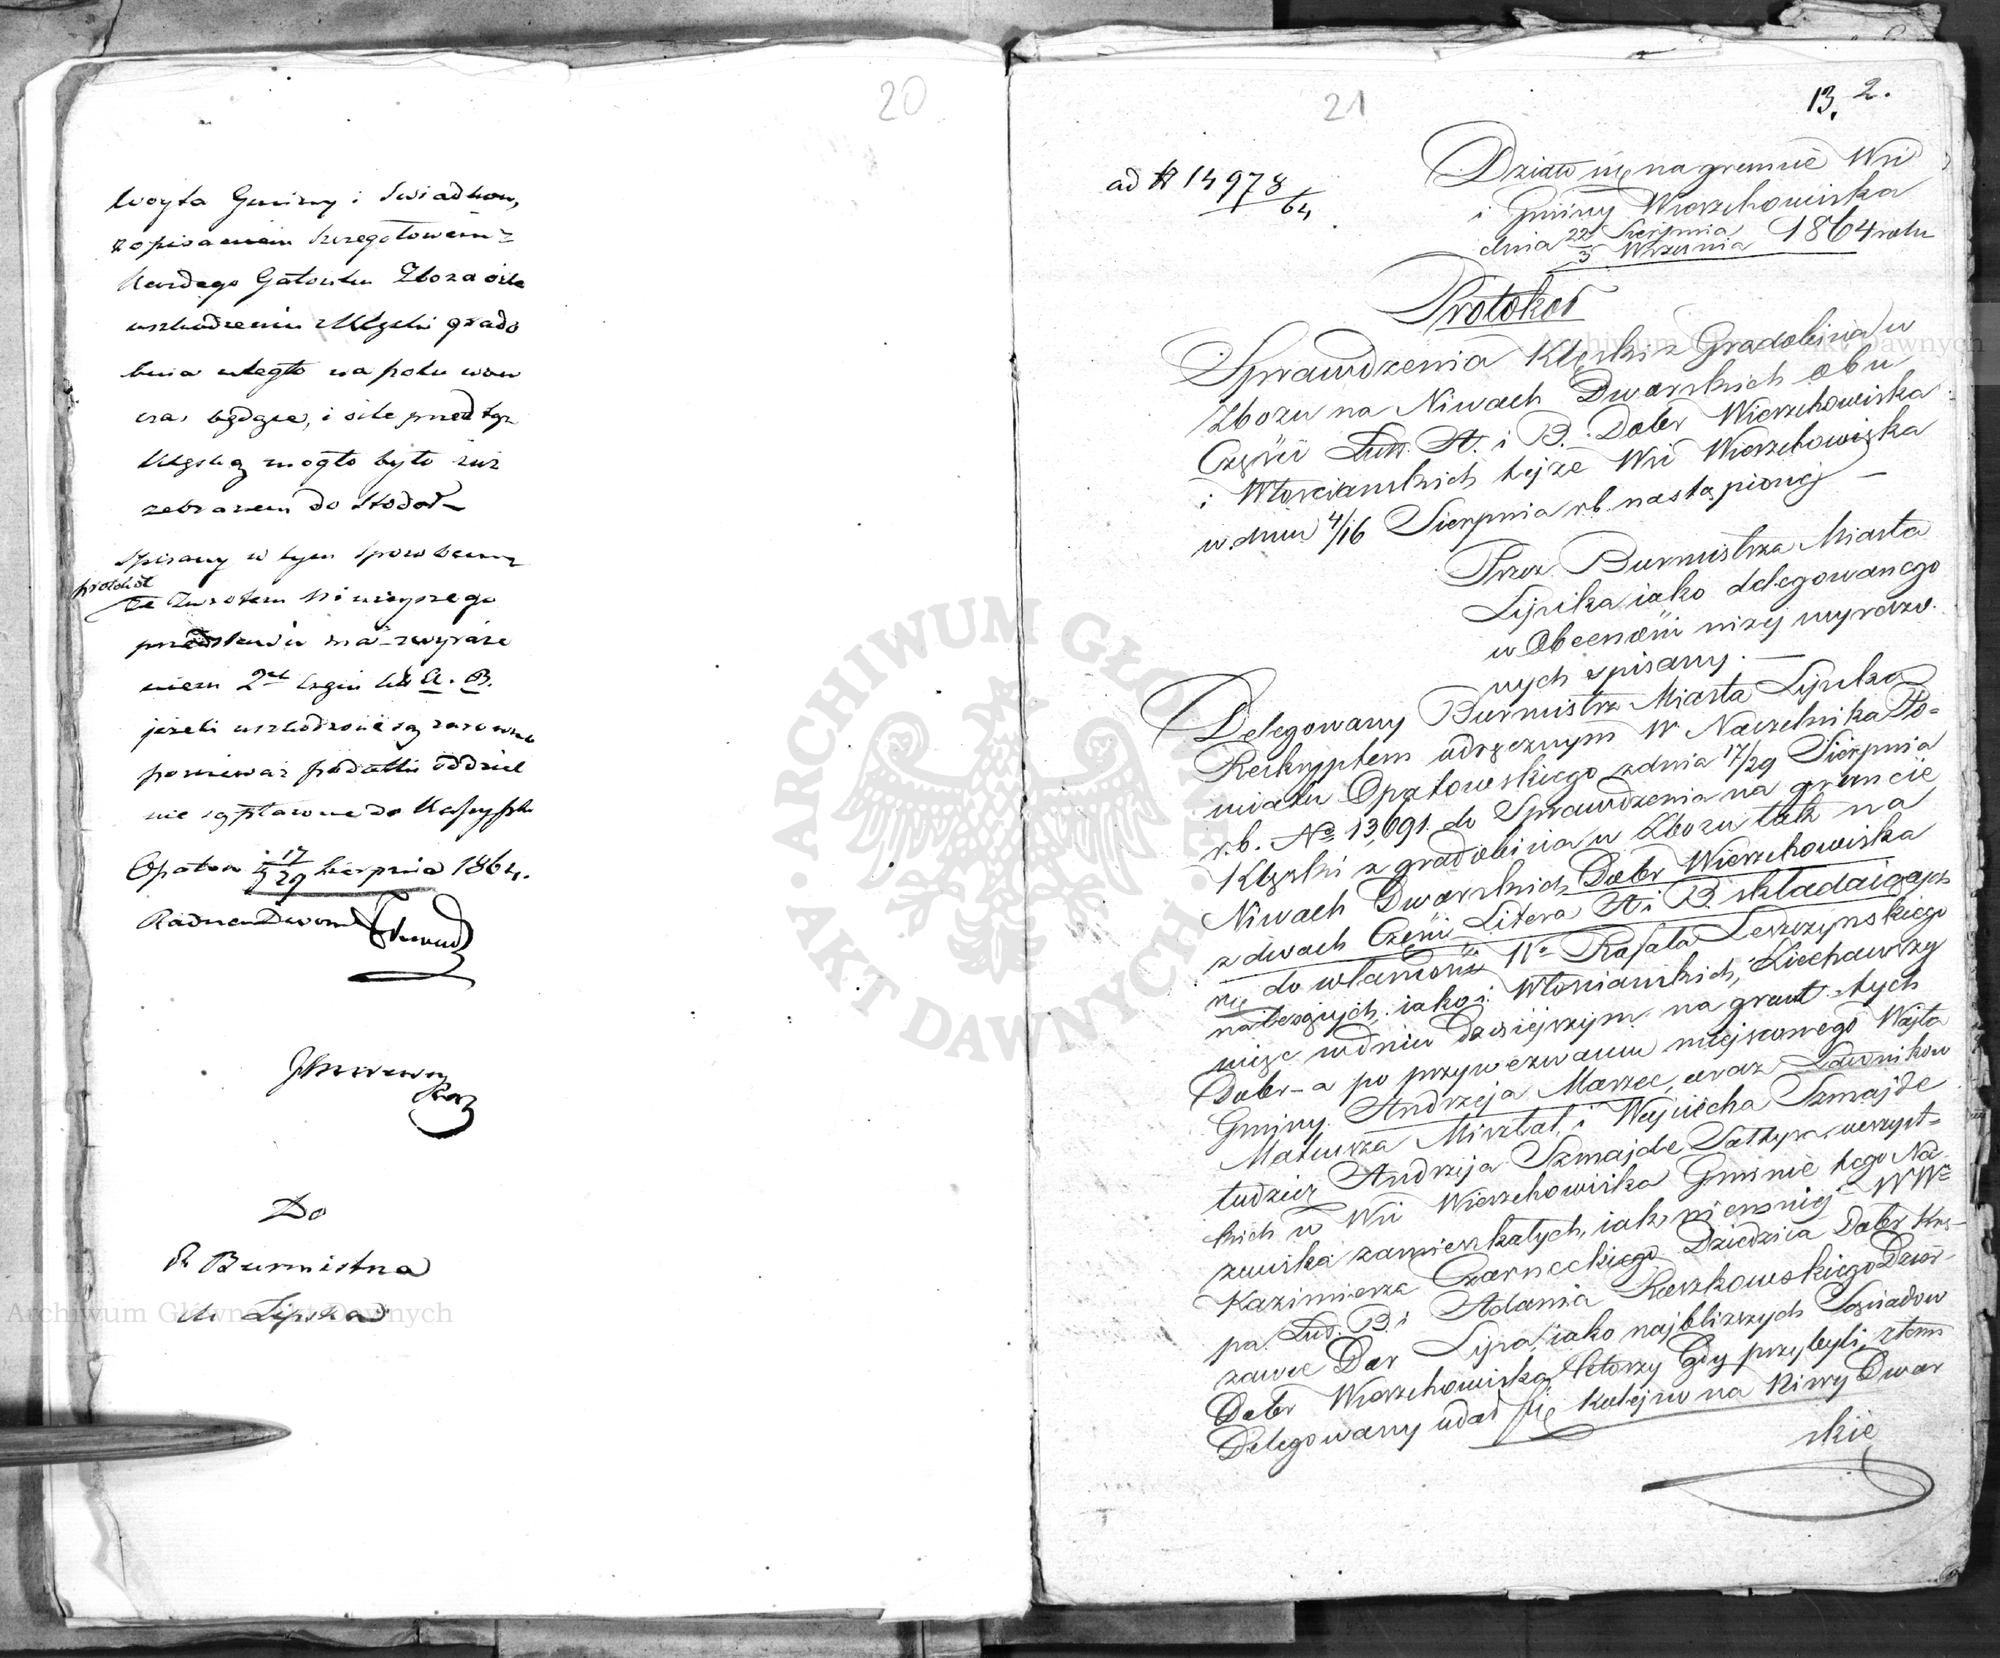 20
Woyta Gminy i Swiadkow,
z opisaniem szczegołowem
każdego Gatunku Zboza o ile
uszkodzeniu z klęski grado
bicia uległo na polu wow
czas będące, i o ile przed tą
klęską mogło było już
zebranem do stodoł
Spisany w tym sposobem
protokół
ze zwrotem niniejszego
przedstawi mi z wyraże
niem 2ch części Lit A. B.
jeżeli uszkodzone są zarowno
ponieważ podatki oddziel
nie są płacone do Kassy
Opatow d 17/29 Sierpnia 1864.
Radca Dworu
Do
Burmistrza
M. Lipska
21
13. 2.
ad N 14978/64
Działo się na gruncie Wsi
i Gminy Wierzchowiska
dnia 22 Sierpnia / 3 Września 1864 roku
Protokoł
Sprawdzenia Klęski z Gradobicia w
Zbożu na Niwach Dworskich obu
Części Litt. A. i B. Dobr Wierzchowiska
i Włosciańskich tejże Wsi Wierzchowiska
w dniu 4/16 Sierpnia r.b. nastąpionej
Przez Burmistrza Miasta
Lipska iako delegowanego
w Obecności niżej wyrażo
nych spisany.
Delegowany Burmistrz Miasta Lipska
Reskryptem odręcznym W Naczelnika Po-
wiatu Opatowskiego z dnia 17/29 Sierpnia
r.b. No 13,691 do Sprawdzenia na gruncie
Klęski z gradobicia w Zbożu tak na
Niwach Dworskich Dobr Wierzchowiska
z dwoch Części Litera A i B składaiących
się do własności Wo Rafała Leszczynskiego
należących, iako i Włosciańskich, Ziechawszy
więc w dniu dzisiejszym na grunt tych
Dobr - a po przywezwaniu miejscowego Wojta
Gminy Andrzeja Marzec, oraz Ławnikow
Mateusza Misztal i Wojciecha Szmajde
tudzież Andrzeja Szmajde Sołtysa wszyst-
kich w Wsi Wierzchowiska Gminie tego Na
zwiska zamieszkałych, iak niemniej WWo
Kazimierza Czarneckiego Dziedzica Dobr Krę-
pa Lit. B. i Adama Raszkowskiego Dzier-
zawce Dobr Lipa, iako najbliższych Sąsiadow
Dobr Wierzchowiska, ktorzy Gdy przybyli, z temi
Delegowany udał się kolejno na Niwy Dwor
skie
Archiwum Główne Akt Dawnych
Archiwum Główne Akt Dawnych
ARCHIWUM GŁÓWNE · AKT DAWNYCH ·